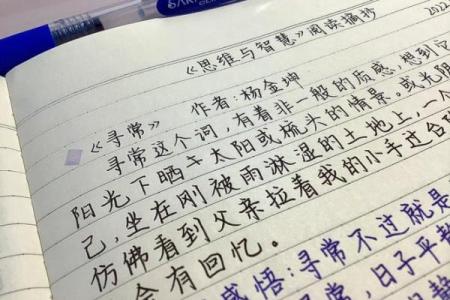 《思维与智慧》阅读摘抄 2022
《寻常》 作者:杨金坤
寻常这个词,有着非一般的质感。想到它
阳光下晒太阳或梳头的情景。或光阴
己,坐在刚被雨淋湿的土地上,一个
仿佛看到父亲拉着我的小手过台
会有回忆。
感悟:寻常不过就是
寻常,日子平静